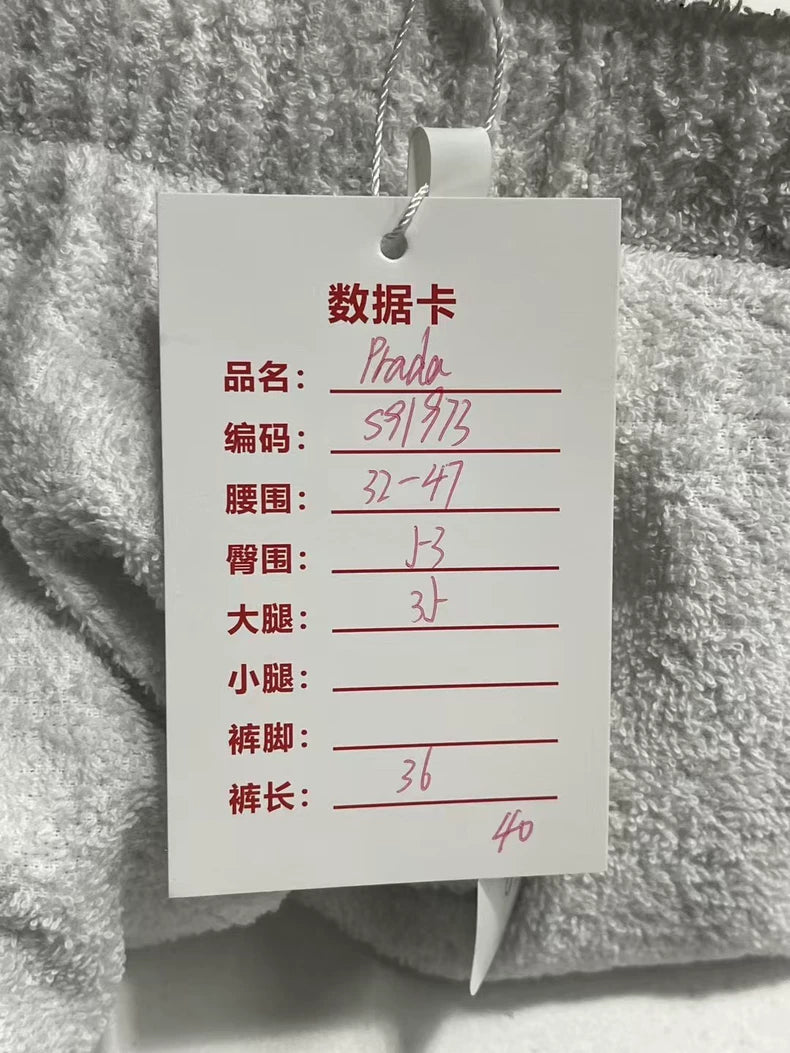 数据卡
品名： Prada
编码： S91973
腰围： 32-47
臀围： 53
大腿： 35
小腿：
裤脚：
裤长： 36
40